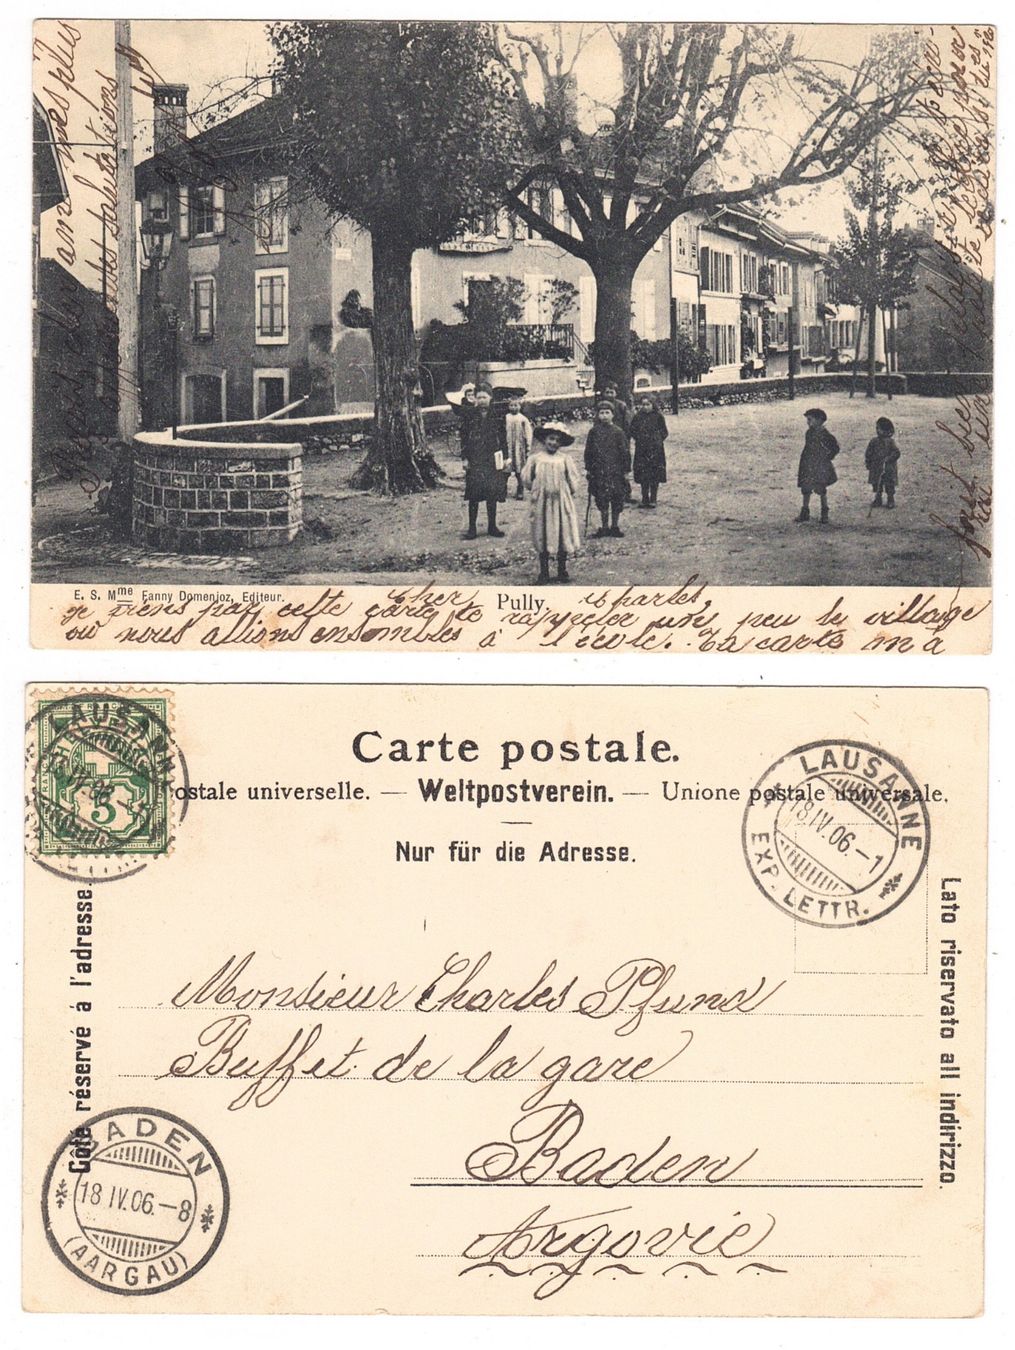 E. S. Mme Fanny Domenjoz, Editeur.
Pully.
Cher Charles,
je viens par cette carte te rappeler un peu le village
où nous allions ensembles à l'école. Ta carte m'a
fait bien plaisir
Reçoit, cher ami mes plus
salutations
Carte postale.
ostale universelle. — Weltpostverein. — Unione postale universale.
Nur für die Adresse.
Côté réservé à l'adresse.
Lato riservato all indirizzo.
LAUSANNE
5
LAUSANNE
18 IV.06.–1
EXP. LETTR.
Monsieur Charles Pfund
Buffet de la gare
Baden
Argovie
BADEN
18 IV.06.–8
(AARGAU)